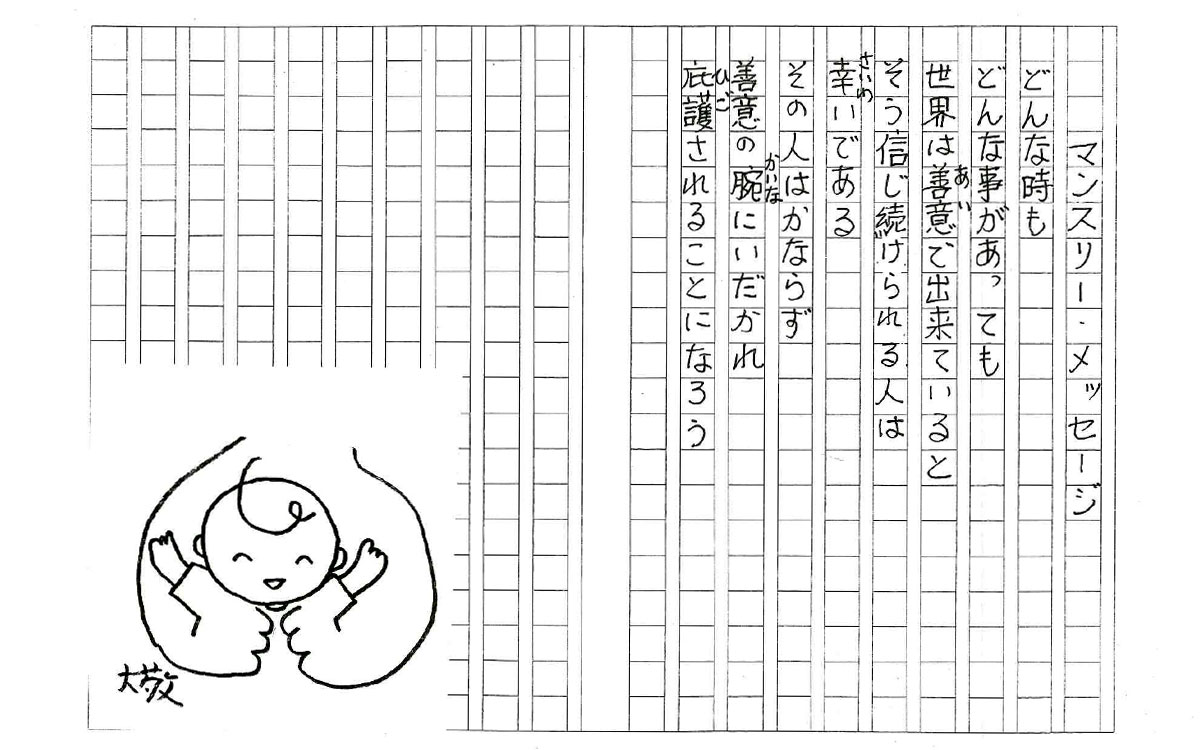 マンスリー・メッセージ
どんな時も
どんな事があっても
世界は善意で出来ていると
あい
そう信じ続けられる人は
幸いである
さいわ
その人はかならず
善意の腕にいだかれ
かいな
庇護されることになろう
ひご
大敬